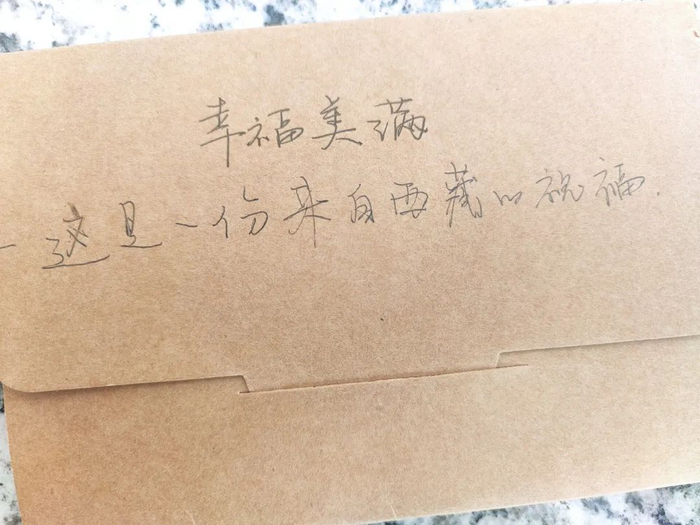 幸福美满
-这是一份来自西藏的祝福.